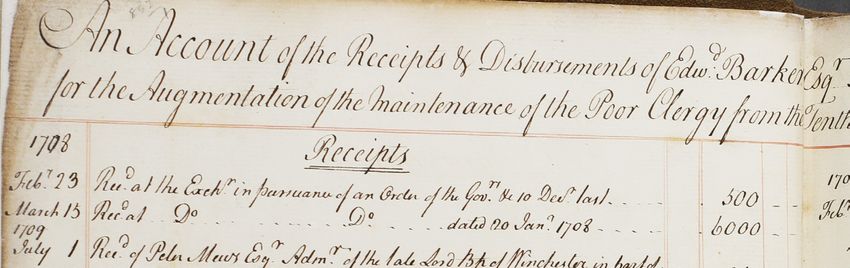 An Account of the Receipts & Disbursements of Edwd. Barker Esqr.
for the Augmentation of the Maintenance of the Poor Clergy from the Tenth
1708
Receipts
Febr. 23 Recd. at the Exchr. in pursuance of an Order of the Govrs. &c 10 Decr. last 500
March 15 Recd. at Do Do dated 20 Janr. 1708 6000
1709
July 1 Recd. of Peter Mews Esqr. Admr. of the late Lord Bp. of Winchester in part of
170
Febr.